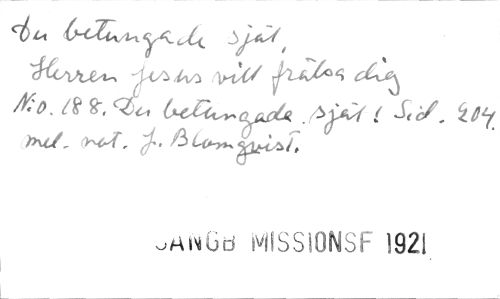 Du betungade själ,
Herren Jesus vill frälsa dig
N:o. 188. Du betungade själ! Sid. 204.
mel. not. J. Blomqvist.
SANGB MISSIONSF 1921